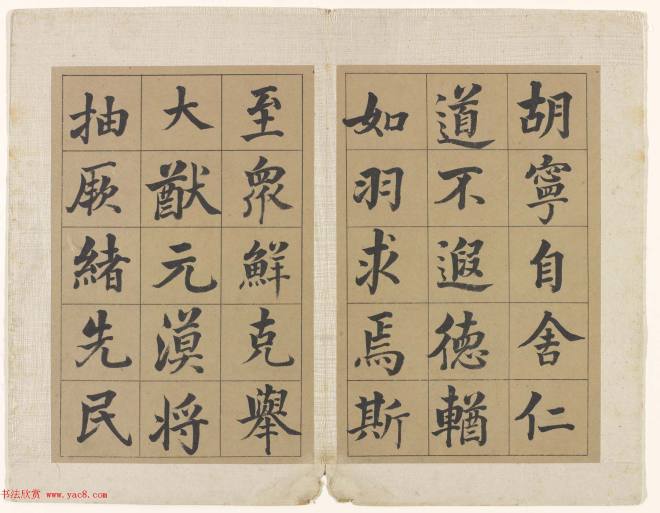 胡寧自舍仁
道不遐德輶
如羽求焉斯
至眾鮮克舉
大猷元漠將
抽厥緒先民
书法欣赏 www.yac8.com